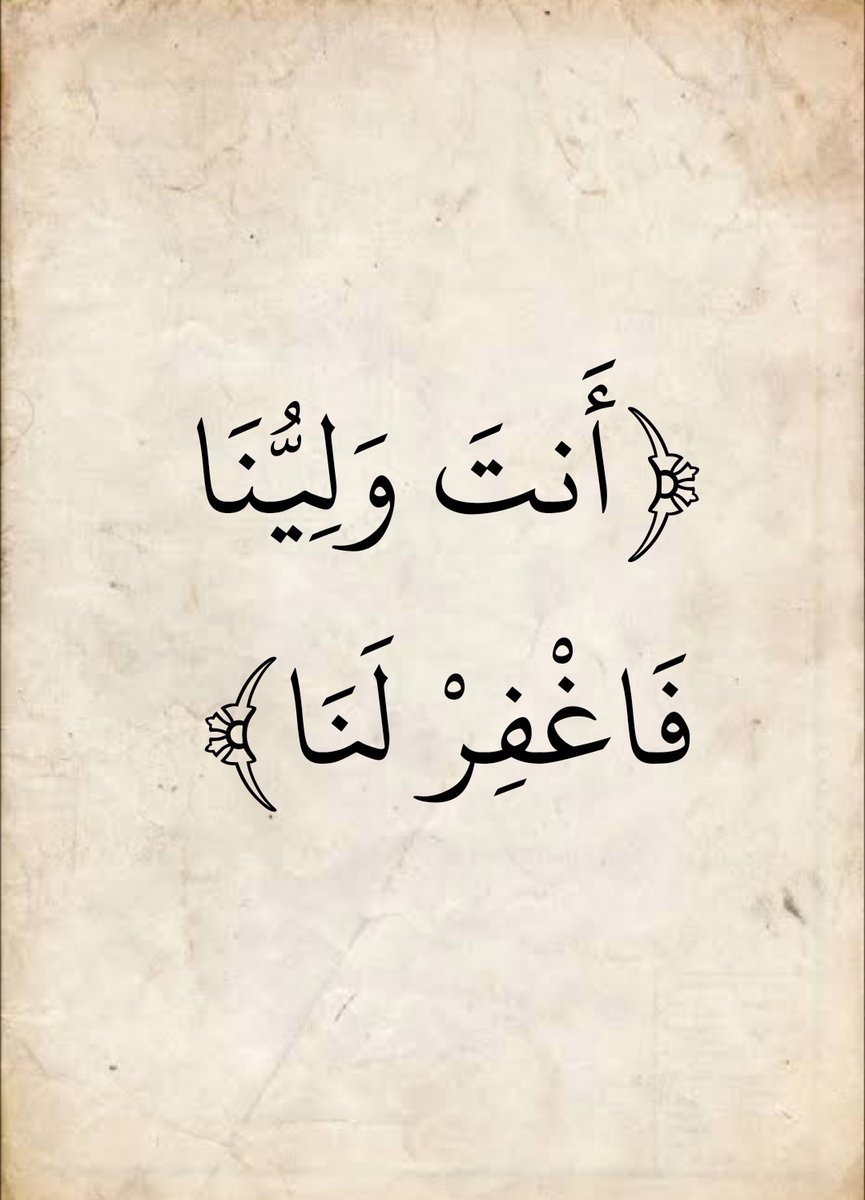 ﴿أَنتَ وَلِيُّنَا
فَاغْفِرْ لَنَا﴾